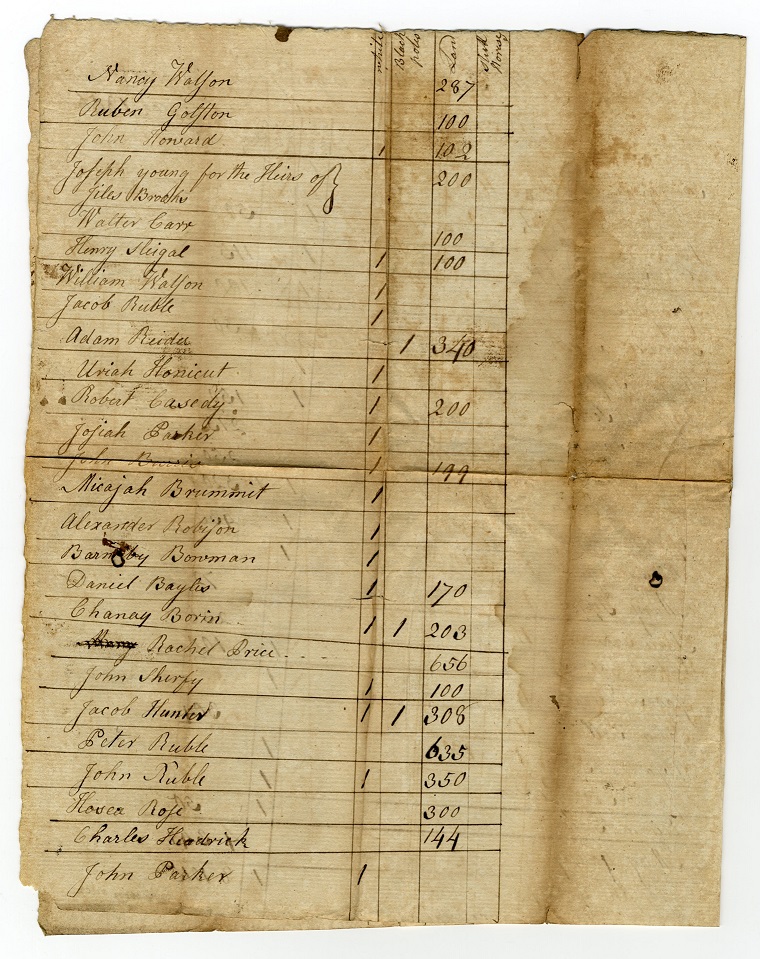 white Black polls Land Stud Horses
Nancy Watson 287
Ruben Golston 100
John Howard 1 102
Joseph young for the Heirs of
Jiles Brooks 200
Walter Carr 100
Henry Sligal 1 100
William Watson 1
Jacob Ruble 1
Adam Reider 1 340
Uriah Honicut 1
Robert Casedy 1 200
Josiah Parker 1
John 1 199
Micajah Brummit 1
Alexander Robison 1
Barnaby Bowman 1
Daniel Bayles 1 170
Chanay Borin 1 1 203
Rachel Price 656
John Sherfy 1 100
Jacob Hunter 1 1 308
Peter Ruble 635
John Ruble 1 350
Hosea Rose 300
Charles Hendrick 144
John Parker 1